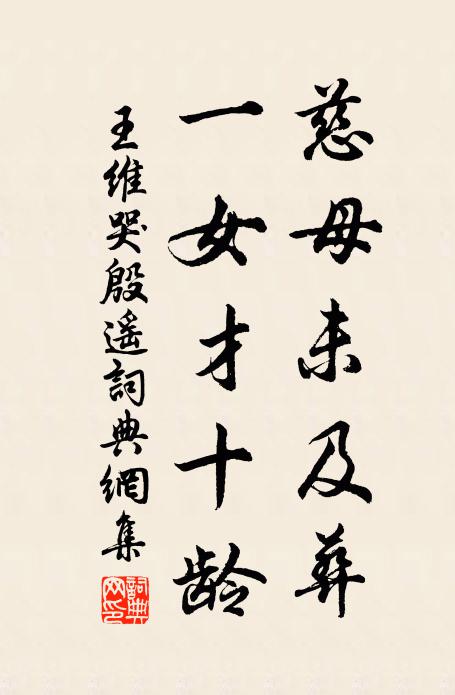 慈母未及葬
一女才十龄
王維哭殷遥詞典網集
詞典网印